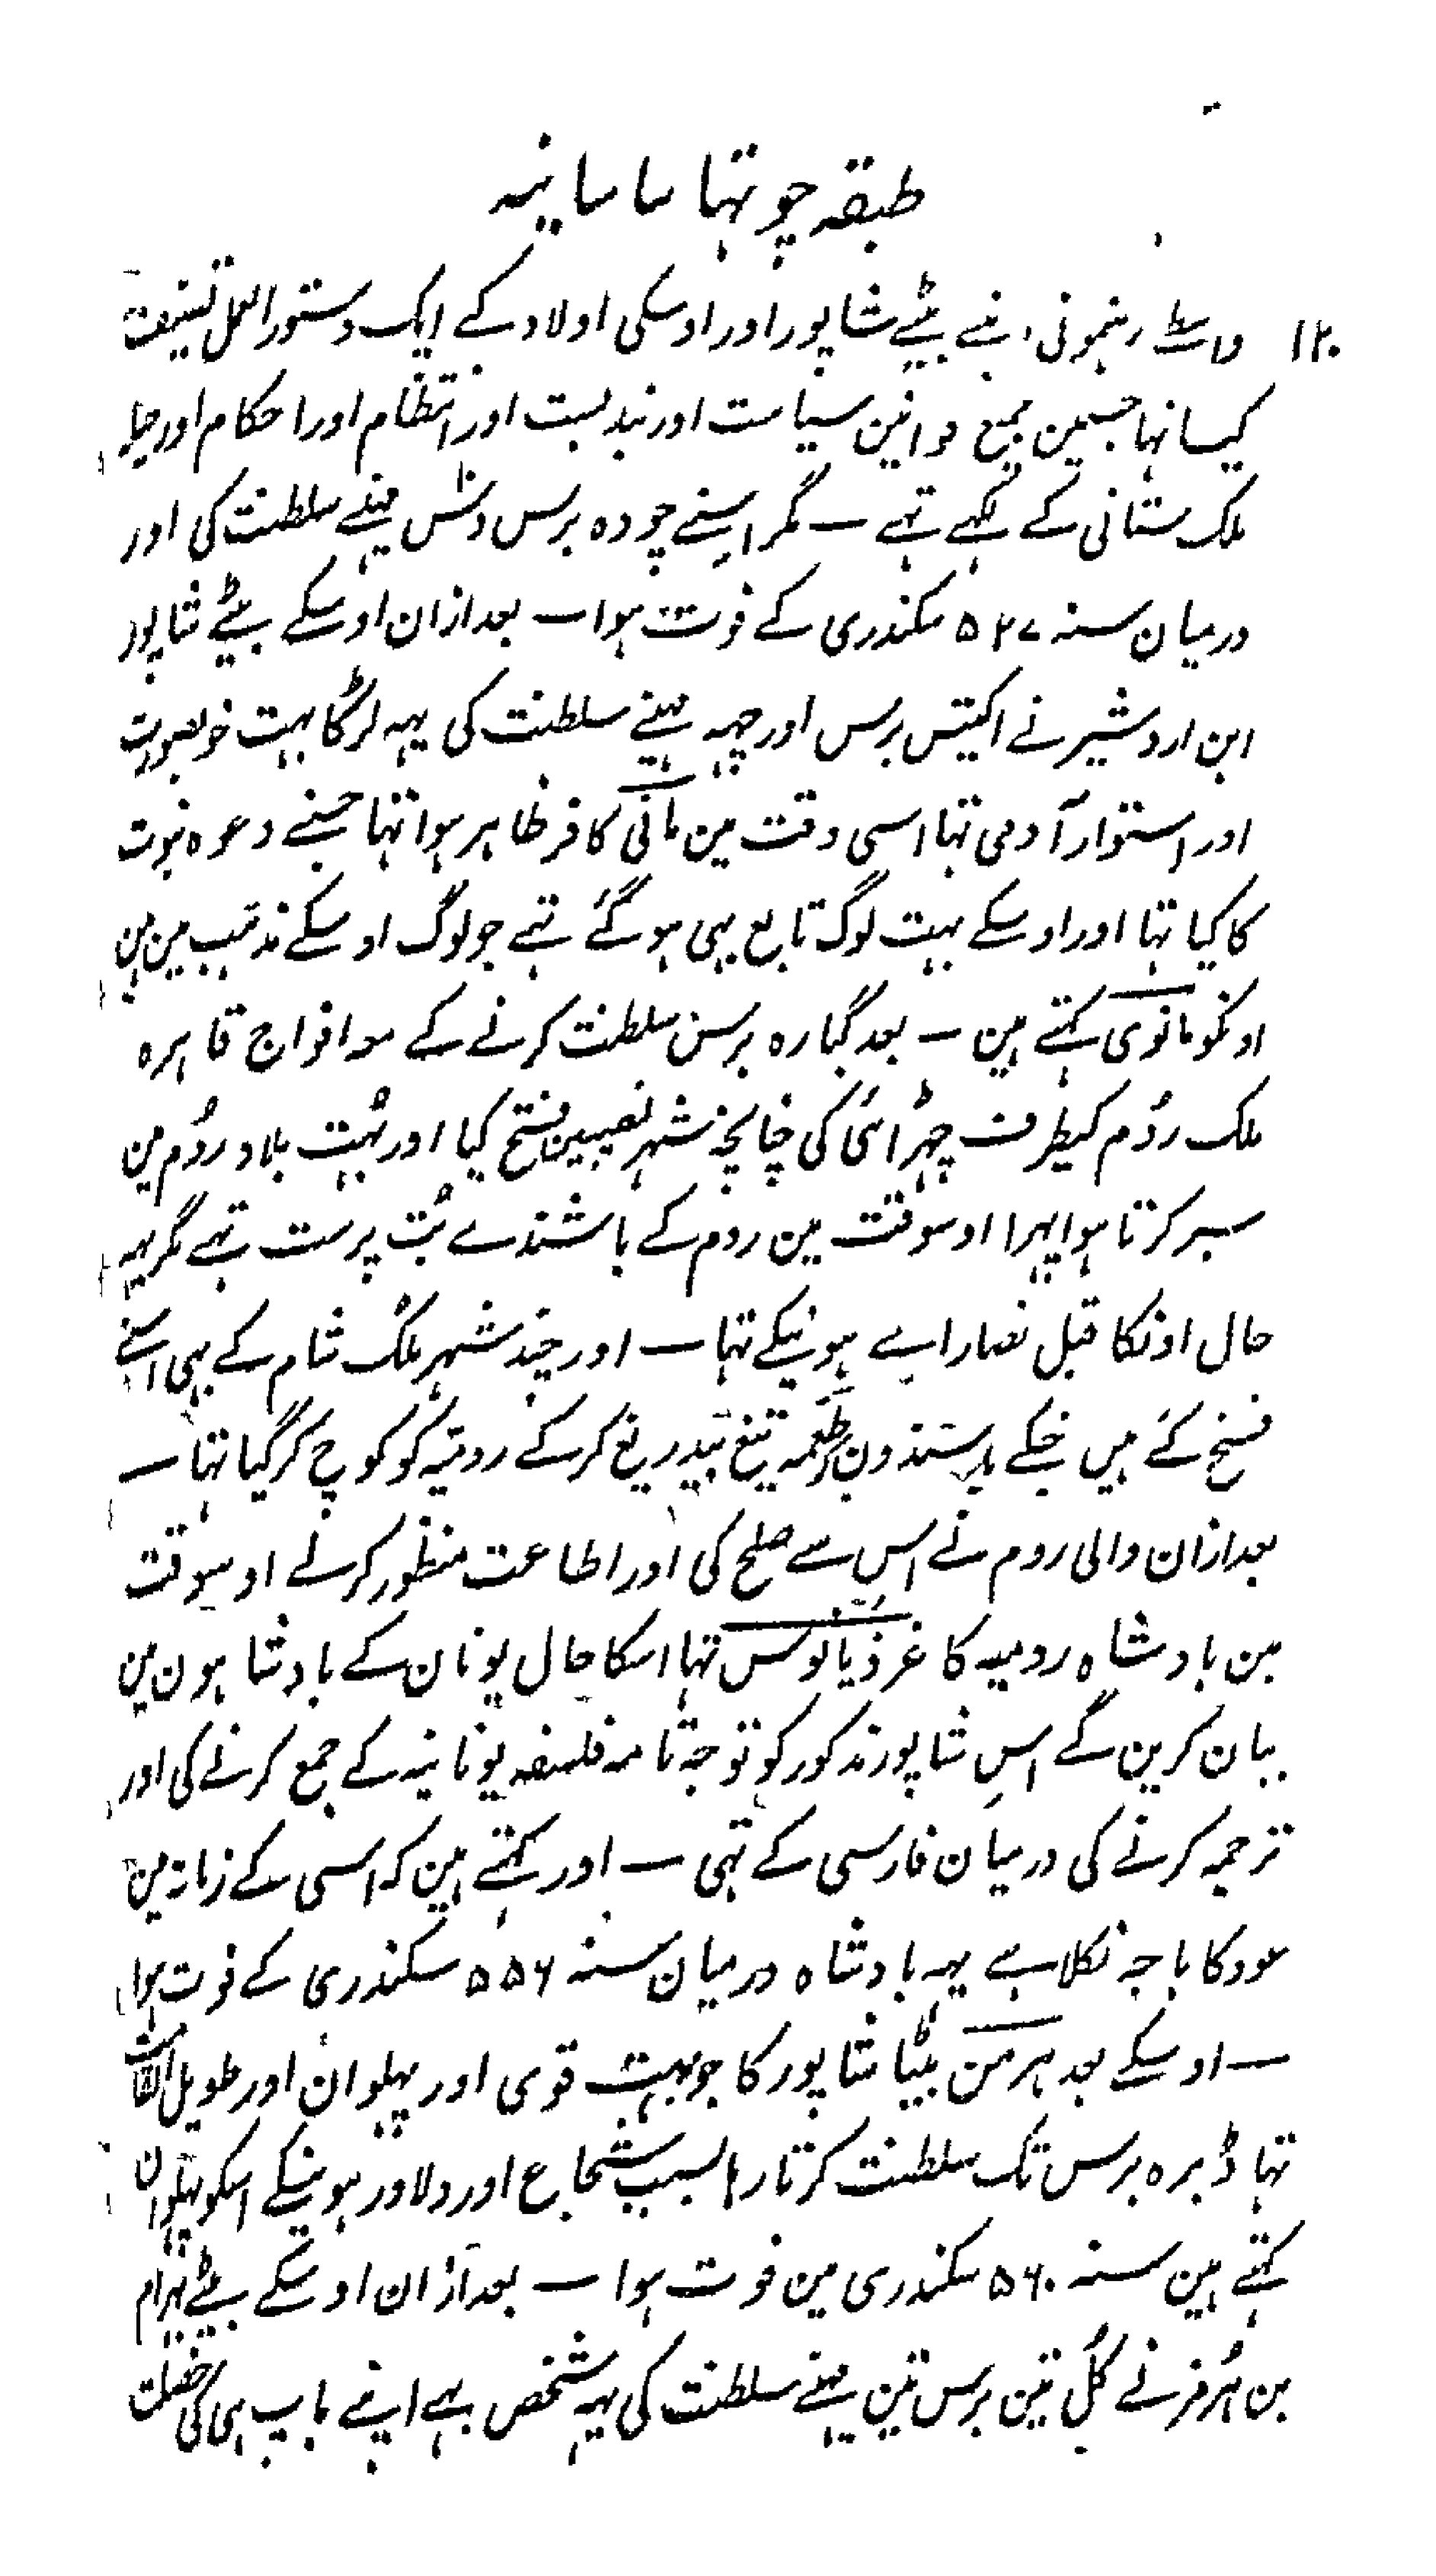 طبقہ چوتھا ساسانیہ
۱۲۰ واسطے رہنمونی اپنے بیٹے شاپور اور اوسکی اولاد کے ایک دستور العمل تصنیف
کیا تہا جسمین جمیع قوانین سیاست اور بندبست اور انتظام اور احکام اور
ملک ستانی کے لکہے تہے — مگر اسنے چودہ برس دش مہینے سلطنت کی اور
درمیان سنہ ۵۲۷ سکندری کے فوت ہوا — بعد ازان اوسکے بیٹے شاپور
ابن اردشیر نے اکتیس برس اور چہہ مہینے سلطنت کی یہہ لڑکا بہت خوبصورت
اور استوار آدمی تہا اسی وقت مین مانی کافر ظاہر ہوا تہا جسنے دعوہ نبوت
کا کیا تہا اور اوسکے بہت لوگ تابع بہی ہو گئے تہے جو لوگ اوسکے مذہب مین ہین
اونکو مانوی کہتے ہین — بعد گیارہ برس سلطنت کرنے کے معہ افواج قاہرہ
ملک رُوم کیطرف چہڑائی کی چنانچہ شہر نصیبین فتح کیا اور بہت بلاد روُم مین
سیر کرتا ہوا پہرا اوسوقت مین روم کے باشندے بُت پرست تہے مگر یہہ
حال اونکا قبل نصارا ہونیکے تہا — اور چند شہر ملک شام کے بہی اسنے
فتح کئے ہیں جنکے باشندون کو طعمہ تیغ بیدریغ کر کے رومیہ کو کوچ کر گیا تہا —
بعد ازان والی روم نے اس سے صلح کی اور اطاعت منظور کرلے اوسوقت
مین بادشاہ رومیہ کا غرذیانوس تہا اسکا حال یونان کے بادشاہون مین
بیان کرین گے اسِ شاپور مذکور کو توجہ تامہ فلسفہ یونانیہ کے جمع کرنے کی اور
ترجمہ کرنے کی درمیان فارسی کے تہی — اور کہتے ہین کہ اسی کے زمانہ مین
عود کا باجہ نکلا ہے یہہ بادشاہ درمیان سنہ ۵۵۶ سکندری کے فوت ہوا
— اوسکے بعد ہرمن بیٹا شاپور کا جو بہت قوی اور پہلوان اور طویل القامت
تہا ڈیرہ برس تک سلطنت کرتا رہا بسبب شجاع اور دلاور ہونیکے اسکو پہلوان
کہتے ہین سنہ ۵۶۰ سکندری مین فوت ہوا — بعد ازان اوسکے بیٹے بہرام
بن ہُرمز نے کُل تین برس تین مہینے سلطنت کی یہہ شخص بہے اپنے باپ ہی کی خصلت